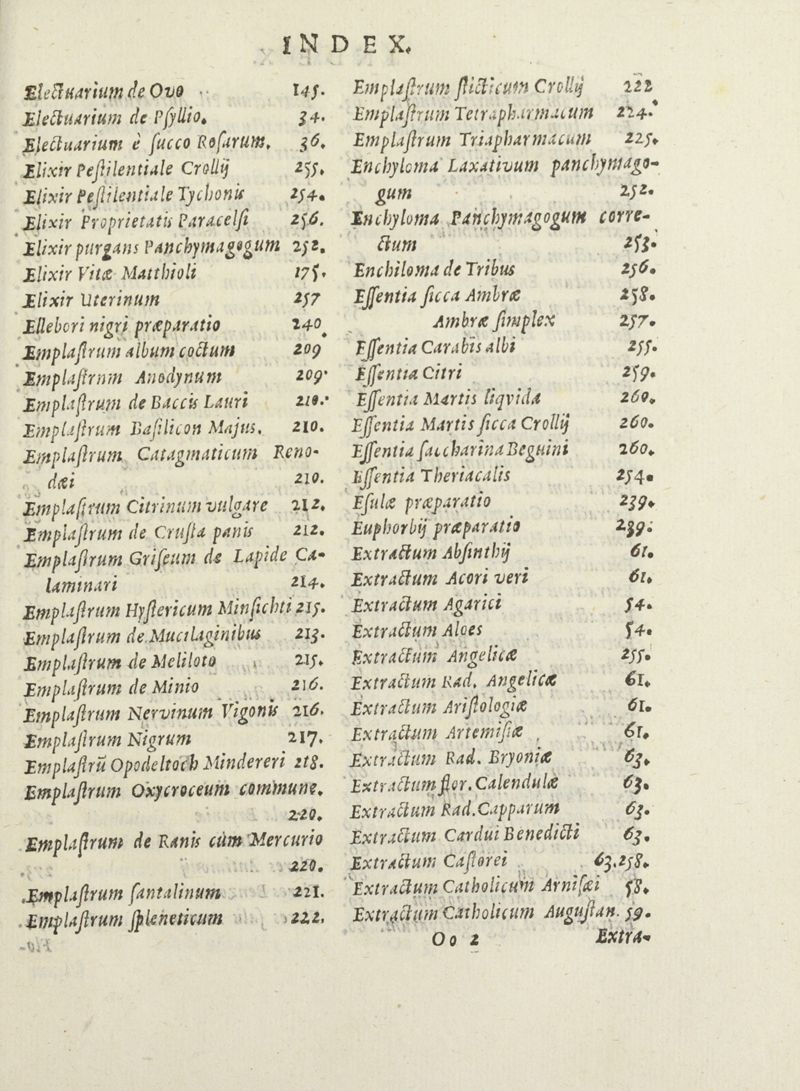 INDEX.
Electuarium de Ovo 145.
Electuarium de Psyllio. 34.
Electuarium è succo Rosarum. 36.
Elixir Pestilentiale Crollij 255.
Elixir Pestilentiale Tychonis 254.
Elixir Proprietatis Paracelsi 256.
Elixir purgans Panchymagogum 252.
Elixir Vitæ Matthioli 175.
Elixir Uterinum 257
Ellebori nigri præparatio 240.
Emplastrum album coctum 209
Emplastrnm Anodynum 209.
Emplastrum de Baccis Lauri 210.
Emplastrum Basilicon Majus. 210.
Emplastrum Catagmaticum Reno-
dæi 210.
Emplastrum Citrinum vulgare 212.
Emplastrum de Crusta panis 212.
Emplastrum Griseum de Lapide Ca-
laminari 214.
Emplastrum Hystericum Minsichti 215.
Emplastrum de Mucilaginibus 213.
Emplastrum de Meliloto 215.
Emplastrum de Minio 216.
Emplastrum Nervinum Vigonis 216.
Emplastrum Nigrum 217.
Emplastrū Opodeltoch Mindereri 218.
Emplastrum Oxycroceum commune.
220.
Emplastrum de Ranis cùm Mercurio
220.
Emplastrum santalinum 221.
Emplastrum spleneticum 222.
Emplastrum sticticum Crollij 222
Emplastrum Tetrapharmacum 224.
Emplastrum Triapharmacum 225.
Enchyloma Laxativum panchymago-
gum 252.
Enchyloma Panchymagogum corre-
ctum 253.
Enchiloma de Tribus 256.
Essentia sicca Ambræ 258.
Ambræ simplex 257.
Essentia Carabis albi 255.
Essentia Citri 259.
Essentia Martis liqvida 260.
Essentia Martis sicca Crollij 260.
Essentia saccharina Beguini 260.
Essentia Theriacalis 254.
Esulæ præparatio 239.
Euphorbij præparatio 239.
Extractum Absinthij 61.
Extractum Acori veri 61.
Extractum Agarici 54.
Extractum Aloes 54.
Extractum Angelicæ 255.
Extractum Rad. Angelicæ 61.
Extractum Aristologiæ 61.
Extractum Artemisiæ 61.
Extractum Rad. Bryoniæ 63.
Extractum flor. Calendulæ 63.
Extractum Rad. Capparum 63.
Extractum Cardui Benedicti 63.
Extractum Castorei 63.258.
Extractum Catholicum Arnisæi 58.
Extractum Catholicum Augustan. 59.
Oo 2 Extra-